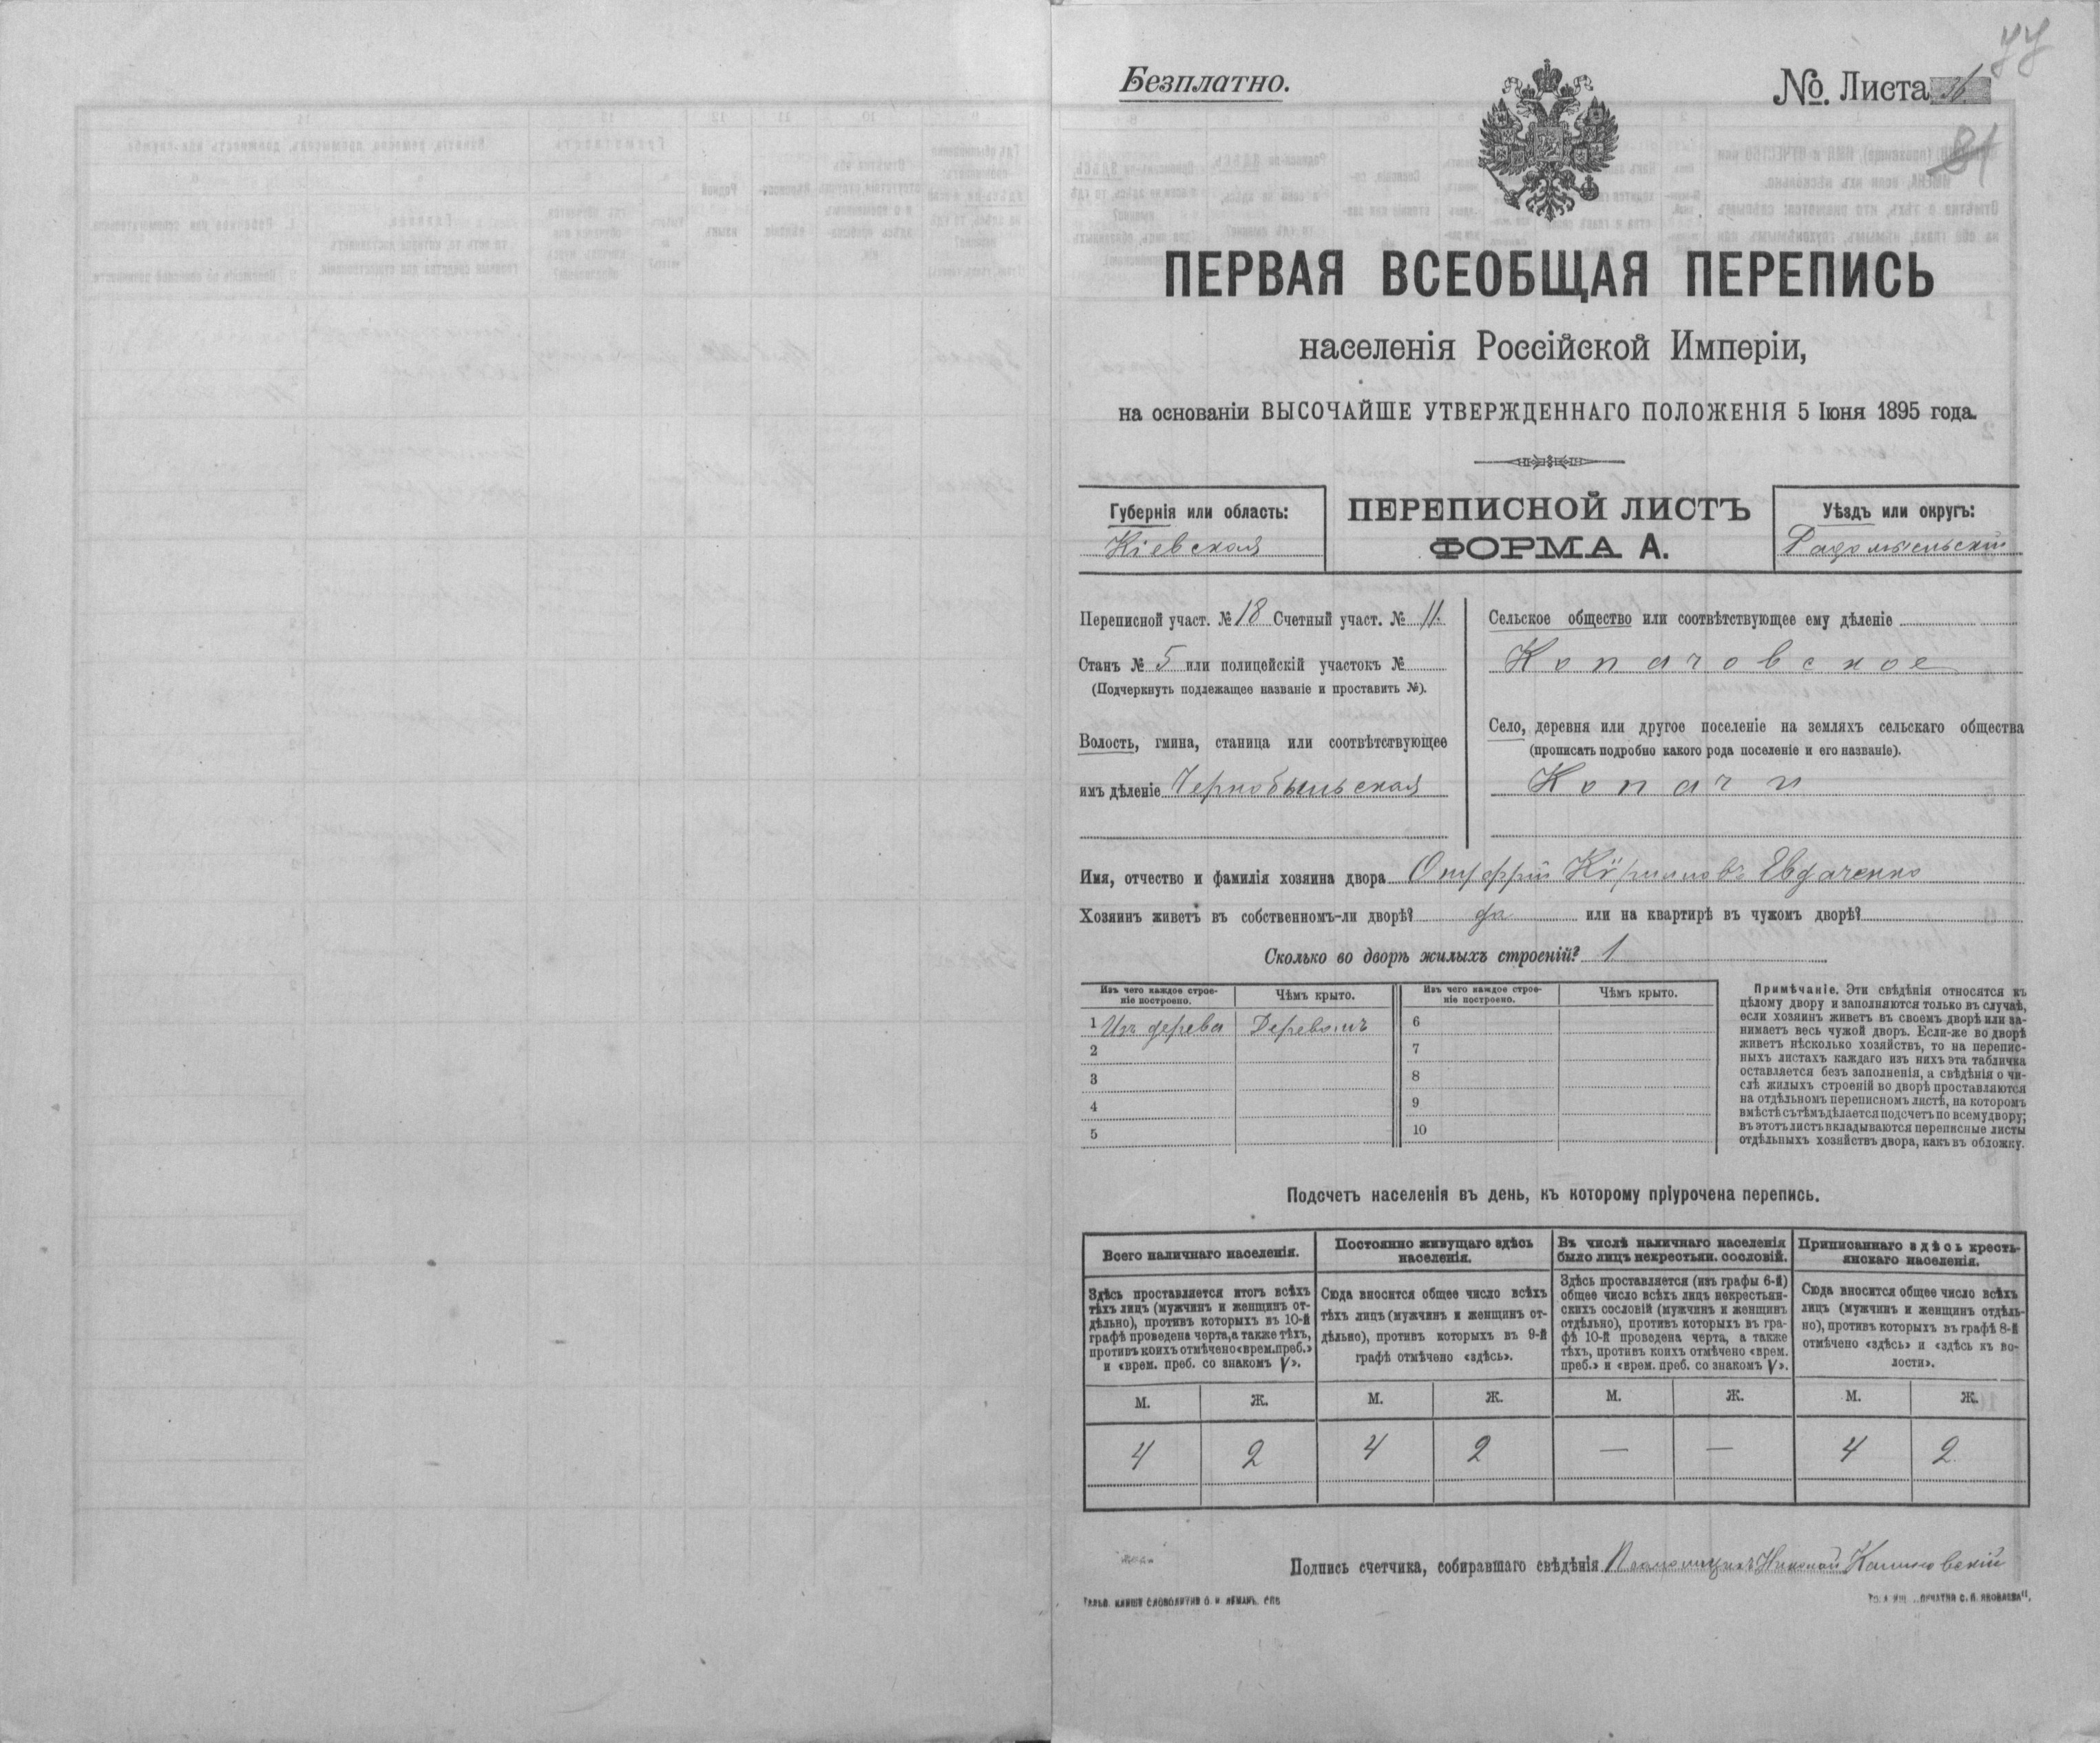 Безплатно.
№. Листа 36
77
81
ПЕРВАЯ ВСЕОБЩАЯ ПЕРЕПИСЬ
населенія Россійской Имперіи,
на основаніи ВЫСОЧАЙШЕ УТВЕРЖДЕННАГО ПОЛОЖЕНІЯ 5 Іюня 1895 года.
Губернія или область:
Кіевская
ПЕРЕПИСНОЙ ЛИСТЪ
ФОРМА А.
Уѣздъ или округъ:
Радомысльскій
Переписной участ. № 18 Счетный участ. № 11.
Станъ № 5 или полицейскій участокъ №
(Подчеркнуть подлежащее названіе и проставить №).
Волость, гмина, станица или соотвѣтствующее
имъ дѣленіе Чернобыльская
Сельское общество или соотвѣтствующее ему дѣленіе
Копачовское
Село, деревня или другое поселеніе на земляхъ сельскаго общества
(прописать подробно какого рода поселеніе и его названіе).
Копачи
Имя, отчество и фамилія хозяина двора Онуфрій Кириловъ Евдаченко
Хозяинъ живетъ въ собственномъ-ли дворѣ? да или на квартирѣ въ чужомъ дворѣ?
Сколько во дворѣ жилыхъ строеній? 1
Изъ чего каждое строе-
ніе построено.
Чѣмъ крыто.
Изъ чего каждое строе-
ніе построено.
Чѣмъ крыто.
1 Изъ дерева Деревомъ 6
2 7
3 8
4 9
5 10
Примѣчаніе. Эти свѣдѣнія относятся къ
цѣлому двору и заполняются только въ случаѣ,
если хозяинъ живетъ въ своемъ дворѣ или за-
нимаетъ весь чужой дворъ. Если-же во дворѣ
живетъ нѣсколько хозяйствъ, то на перепис-
ныхъ листахъ каждаго изъ нихъ эта табличка
оставляется безъ заполненія, а свѣдѣнія о чи-
слѣ жилыхъ строеній во дворѣ проставляются
на отдѣльномъ переписномъ листѣ, на которомъ
вмѣстѣ съ тѣмъ дѣлается подсчетъ по всему двору;
въ этотъ листъ вкладываются переписные листы
отдѣльныхъ хозяйствъ двора, какъ въ обложку.
Подсчетъ населенія въ день, къ которому пріурочена перепись.
Всего наличнаго населенія.
Постоянно живущаго здѣсь
населенія.
Въ числѣ наличнаго населенія
было лицъ некрестьян. сословій.
Приписаннаго здѣсь кресть-
янскаго населенія.
Здѣсь проставляется итогъ всѣхъ
тѣхъ лицъ (мужчинъ и женщинъ от-
дѣльно), противъ которыхъ въ 10-й
графѣ проведена черта, а также тѣхъ,
противъ коихъ отмѣчено «врем. преб.»
и «врем. преб. со знакомъ V».
Сюда вносится общее число всѣхъ
тѣхъ лицъ (мужчинъ и женщинъ от-
дѣльно), противъ которыхъ въ 9-й
графѣ отмѣчено «здѣсь».
Здѣсь проставляется (изъ графы 6-й)
общее число всѣхъ лицъ некрестьян-
скихъ сословій (мужчинъ и женщинъ
отдѣльно), противъ которыхъ въ гра-
фѣ 10-й проведена черта, а также
тѣхъ, противъ коихъ отмѣчено «врем.
преб.» и «врем. преб. со знакомъ V».
Сюда вносится общее число всѣхъ
лицъ (мужчинъ и женщинъ отдѣль-
но), противъ которыхъ въ графѣ 8-й
отмѣчено «здѣсь» и «здѣсь къ во-
лости».
М. Ж. М. Ж. М. Ж. М. Ж.
4 2 4 2 — — 4 2
Подпись счетчика, собиравшаго свѣдѣнія Псаломщикъ Николай Калиновскій
СЛОВОЛИТНИ О. И ЛЕМАНЪ. СПБ
ПЕЧАТНЯ С. П. ЯКОВЛЕВА".